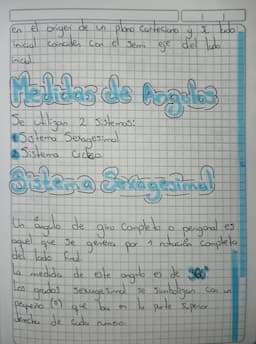 en el origen de un plano Cartesiano y su lado
inicial coinciden con el semi eje del lado
inicial
Medidas de Angulos
Se utilizan 2 Sistemas:
1 Sistema Sexagesimal
2 Sistema
Sistema Sexagesimal
Un ángulo de giro Completo o perigonal es
aquel que se genera por 1 rotación completa
del lado final.
La medida de este angulo es de 360°
Los grados Sexagesimal se Simbolizan con un
pequeño (°) que va en la parte Superior
derecha de cada numero.